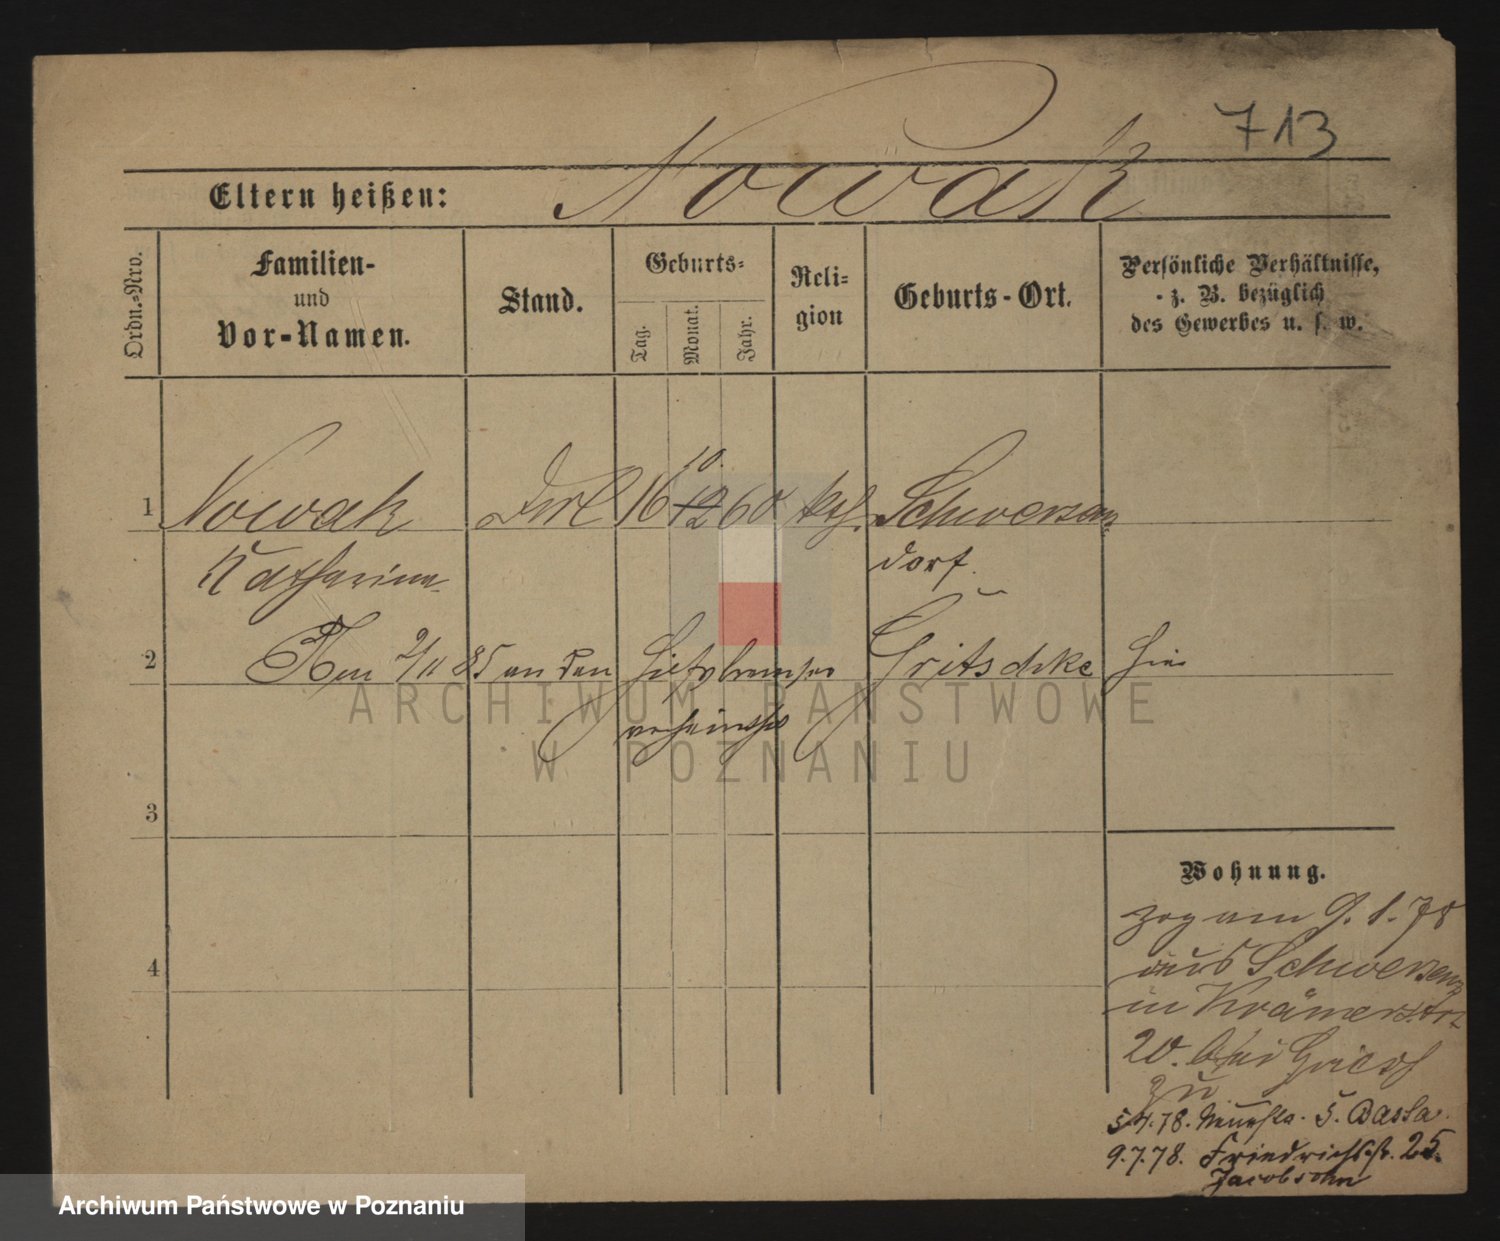 713
Eltern heißen: Nowak
Ordn.-Nro.
Familien-
und
Vor-Namen.
Stand.
Geburts-
Tag.
Monat.
Jahr.
Reli-
gion
Geburts-Ort.
Persönliche Verhältnisse,
z. B. bezüglich
des Gewerbes u. s. w.
10.
1 Nowak 16 12 60 kath. Schwersenz
Katharina dorf.
2 2/11 85 an den Gritschke hier
verheirathet
ARCHIWUM PAŃSTWOWE
W POZNANIU
3
4
Wohnung.
zog am 9. 1. 78
aus Schwersenz
in Krämerstr
20. bei
zu
5.4.78. Neuestr. 5.
9.7.78. Friedrichstr. 25.
Jacobsohn
Archiwum Państwowe w Poznaniu